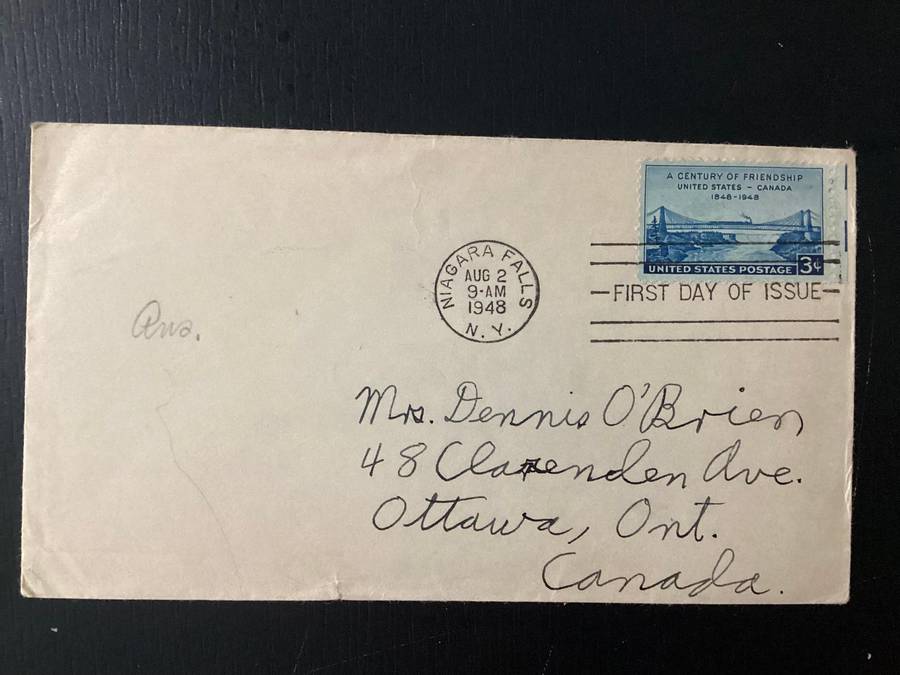 A CENTURY OF FRIENDSHIP
UNITED STATES - CANADA
1848-1948
UNITED STATES POSTAGE 3¢
NIAGARA FALLS
AUG 2
9-AM
1948
N.Y.
FIRST DAY OF ISSUE
Ans.
Mrs. Dennis O'Brien
48 Clarenden Ave.
Ottawa, Ont.
Canada.